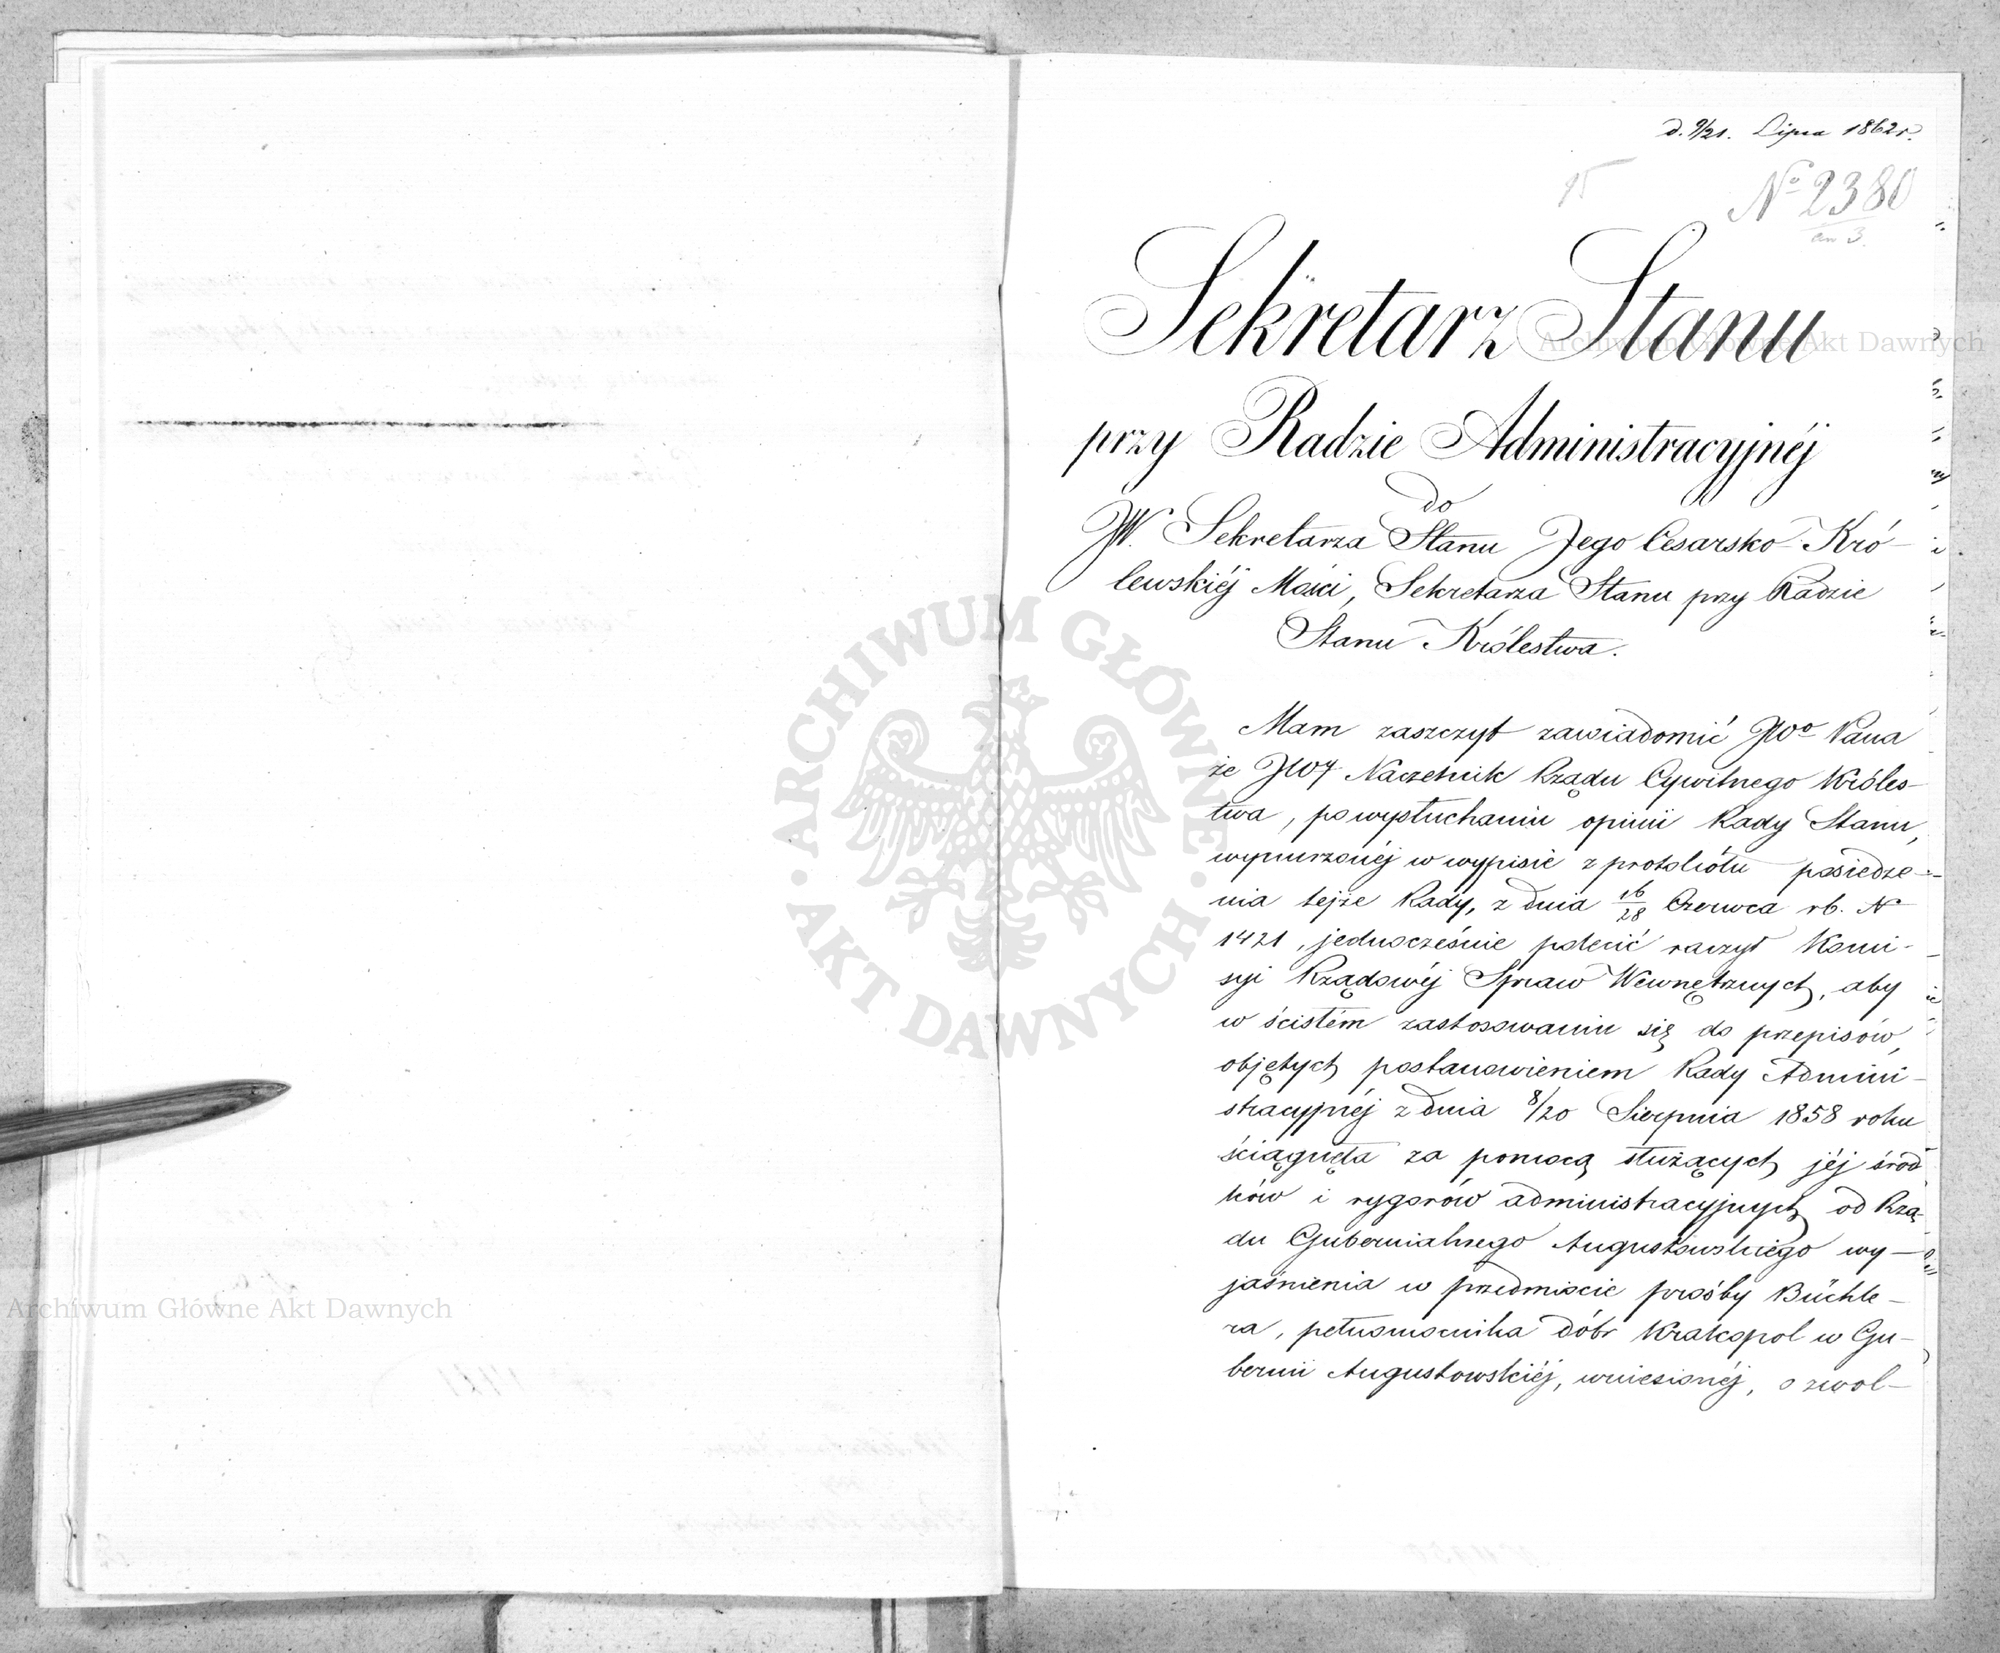 d. 9/21. Lipca 1862 r.
15
No 2380
an 3.
Sekretarz Stanu
przy Radzie Administracyjnéj
do
JW. Sekretarza Stanu Jego Cesarsko-Kró-
lewskiéj Mości, Sekretarza Stanu przy Radzie
Stanu Królestwa.
Mam zaszczyt zawiadomić JWo Pana
że JWy Naczelnik Rządu Cywilnego Króles-
twa, po wysłuchaniu opinii Rady Stanu,
wynurzonéj w wypisie z protokółu posiedze-
nia tejże Rady, z dnia 16/28 Czerwca rb. N
1421, jednocześnie polecić raczył Komi-
syi Rządowéj Spraw Wewnętrznych, aby
w ścisłém zastosowaniu się do przepisów,
objętych postanowieniem Rady Admini-
stracyjnéj z dnia 8/20 Sierpnia 1858 roku
ściągnęła za pomocą służących jéj środ
ków i rygorów administracyjnych od Rzą-
du Gubernialnego Augustowskiego wy-
jaśnienia w przedmiocie prośby Büchle-
ra, pełnomocnika dóbr Krakopol w Gu-
bernii Augustowskiéj, wniesionéj, o zwol-
Archiwum Główne Akt Dawnych
Archiwum Główne Akt Dawnych
ARCHIWUM GŁÓWNE
AKT DAWNYCH